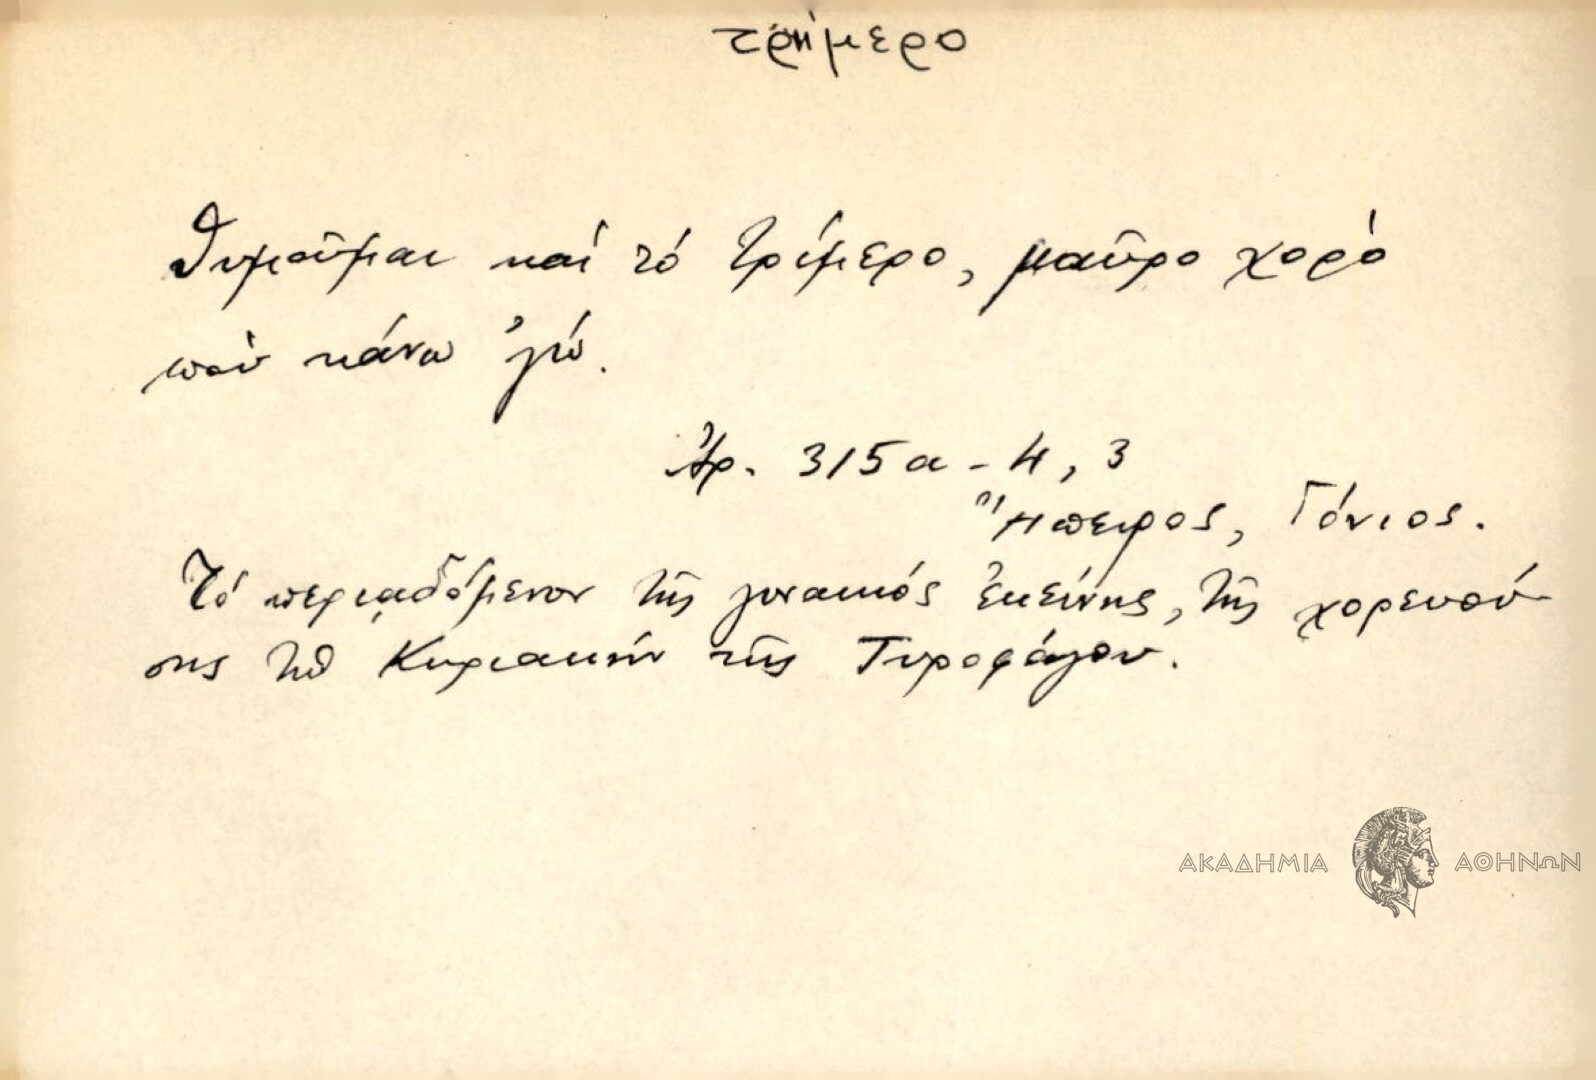 τρίμερο
Θυμοῦμαι καί τό τρίμερο, μαῦρο χορό
πού κάνω ἐγώ.
Ἀρ. 315α - 4, 3
Ἤπειρος, Γόνιος.
Τό περιᾳδόμενον τῆς γυναικός ἐκείνης, τῆς χορευού-
σης τήν Κυριακήν τῆς Τυροφάγου.
ΑΚΑΔΗΜΙΑ ΑΘΗΝΩΝ